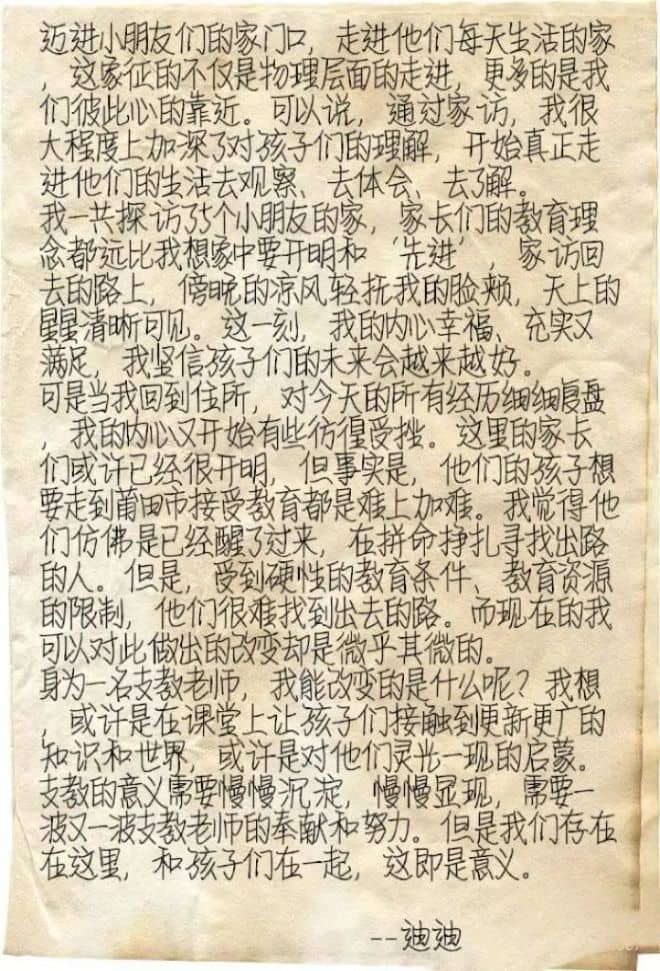 迈进小朋友们的家门口，走进他们每天生活的家
，这象征的不仅是物理层面的走进，更多的是我
们彼此心的靠近。可以说，通过家访，我很
大程度上加深了对孩子们的理解，开始真正走
进他们的生活去观察、去体会、去了解。
我一共探访了5个小朋友的家，家长们的教育理
念都远比我想象中要开明和‘先进’，家访回
去的路上，傍晚的凉风轻抚我的脸颊，天上的
星星清晰可见。这一刻，我的内心幸福、充实又
满足，我坚信孩子们的未来会越来越好。
可是当我回到住所，对今天的所有经历细细复盘
，我的内心又开始有些彷徨受挫。这里的家长
们或许已经很开明，但事实是，他们的孩子想
要走到莆田市接受教育都是难上加难。我觉得他
们仿佛是已经醒了过来，在拼命挣扎寻找出路
的人。但是，受到硬性的教育条件、教育资源
的限制，他们很难找到出去的路。而现在的我
可以对此做出的改变却是微乎其微的。
身为一名支教老师，我能改变的是什么呢？我想
，或许是在课堂上让孩子们接触到更新更广的
知识和世界，或许是对他们灵光一现的启蒙。
支教的意义需要慢慢沉淀，慢慢显现，需要一
波又一波支教老师的奉献和努力。但是我们存在
在这里，和孩子们在一起，这即是意义。
--迪迪